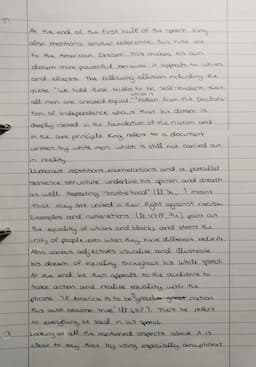 At the end of the first half of the speech King
also mentions another reference, this time one
to the American Dream. This makes his own
dream more powerful, because it appeals to whites
and blacks. The following allusion including the
quote "We hold these truths to be self-evident, that
all men are created equal." which is taken from the Declara-
tion of Independence shows that his dream is
deeply rooted in the foundation of the nation and
in the core principle. King refers to a document
written by white men, which is still not carried out
in reality.
Numerous repetitions, enumerations and a parallel
sentence structure underline his opinion and dream
as well. Repeating "brotherhood" (ll. ) means
that they are united in their fight against racism.
Examples and enumerations (ll. ) point out
the equality of whites and blacks and stress the
unity of people even when they have different beliefs.
Also various adjectives visualize and illustrate
his dream of equality throughout his whole speech.
At the end he then appeals to the audience to
take action and realise equality with the
phrase "If America is to be a great nation
this must become true" (ll. ). There he refers
to everything he said in his speech.
Looking at all the mentioned aspects above it is
clear to say that by using especially anaphoras